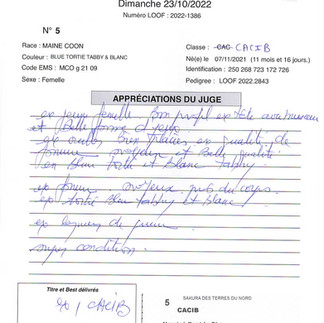 Dimanche 23/10/2022
Numéro LOOF : 2022-1386
N° 5
Race : MAINE COON
Classe : CAC CACIB
Couleur : BLUE TORTIE TABBY & BLANC
Né(e) le : 07/11/2021 (11 mois et 16 jours.)
Code EMS : MCO g 21 09
Identification : 250 268 723 172 726
Sexe : Femelle
Pedigree : LOOF 2022.2843
APPRÉCIATIONS DU JUGE
ex jeune femelle Bon profil ex tête avec museau
et Belle forme d'yeux
oreilles bien placées ex qualité de
et Belle qualité
en Bleu Tortie et Blanc Tabby
ex du corps
ex Tortie Bleu Tabby et Blanc
ex longueur de queue
condition
Titre et Best délivrés
ex 1 CACIB
SAKURA DES TERRES DU NORD
5
CACIB